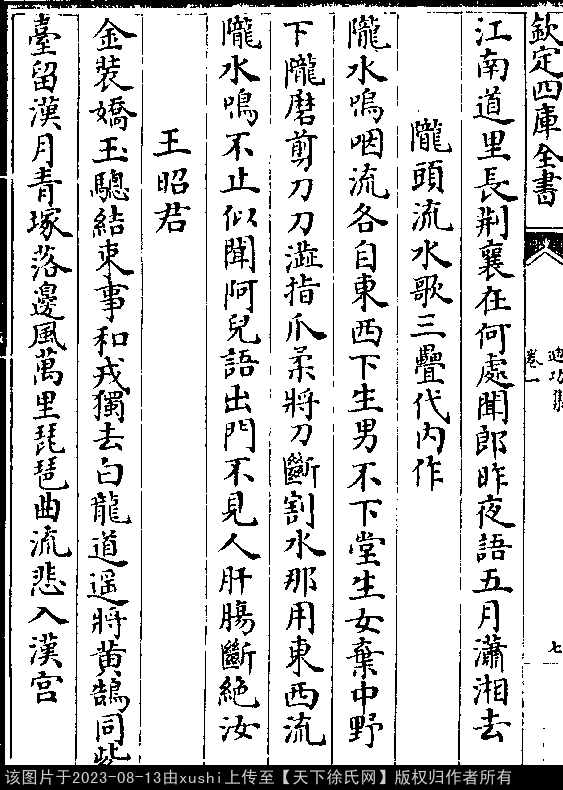 欽定四庫全書
迪功集
卷一
七
江南道里長荆襄在何處聞郎昨夜語五月瀟湘去
隴頭流水歌三疊代内作
隴水鳴咽流各自東西下生男不下堂生女棄中野
下隴磨剪刀刀澁指爪柔將刀斷割水那用東西流
隴水鳴不止似聞阿兒語出門不見人肝腸斷絶汝
王昭君
金裝嬌玉驄結束事和戎獨去白龍道遥將黄鵠同紫
臺留漢月青塚落邊風萬里琵琶曲流悲入漢宫
该图片于2023-08-13由xushi上传至【天下徐氏网】版权归作者所有